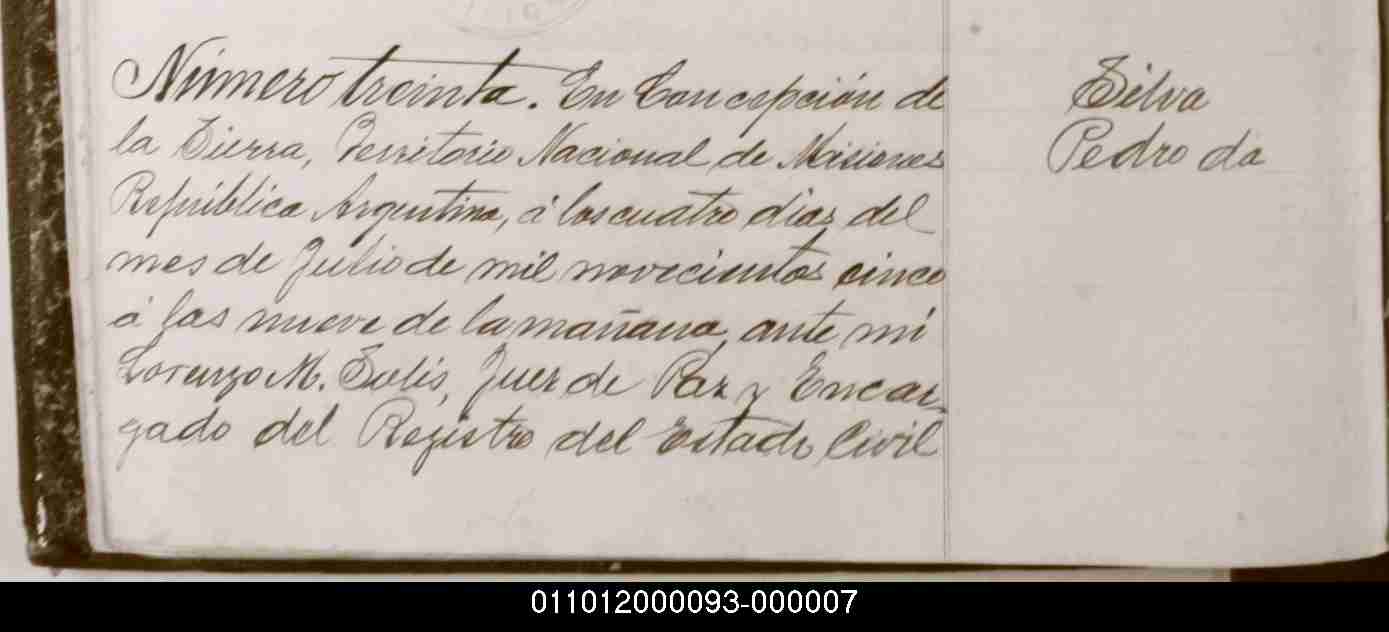 Número treinta. En Concepción de
la Sierra, Territorio Nacional de Misiones
República Argentina, á los cuatro dias del
mes de Julio de mil novecientos cinco
á las nueve de la mañana, ante mi
Lorenzo M. Solis, Juez de Paz y Encar-
gado del Registro del Estado Civil
Silva
Pedro da
011012000093-000007